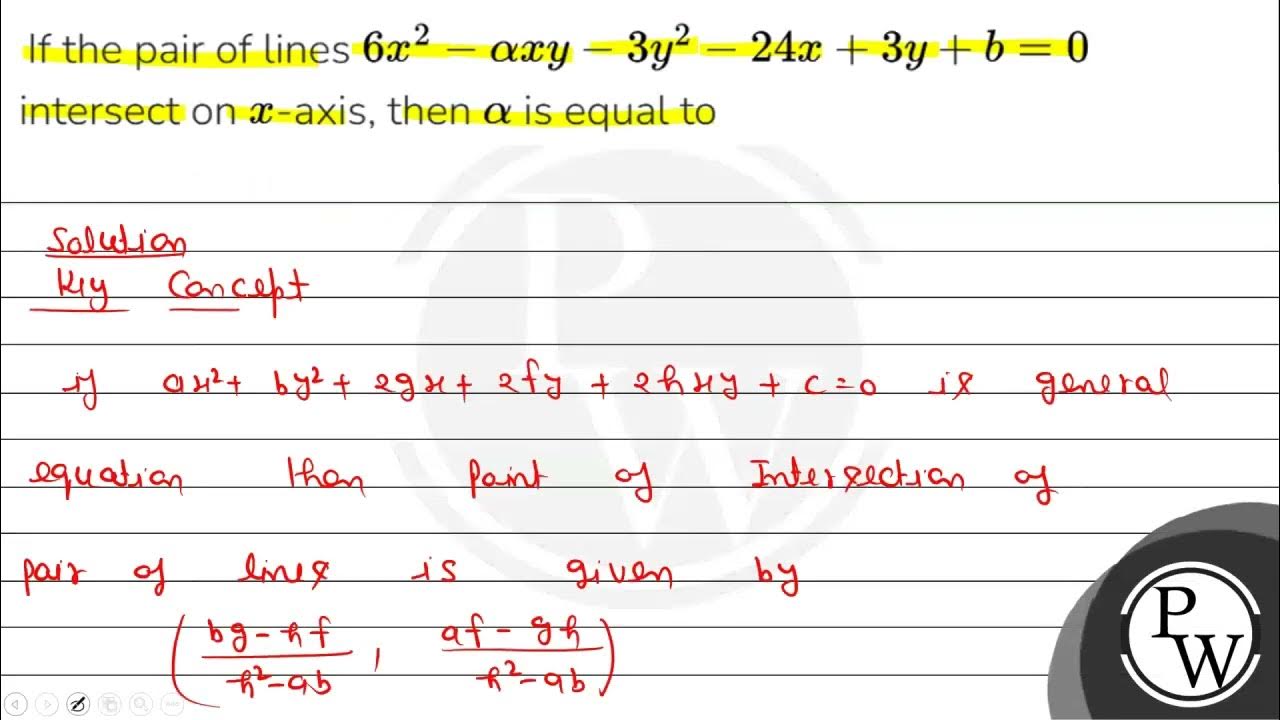 If the pair of lines 6x² − αxy − 3y² − 24x + 3y + b = 0
intersect on x-axis, then α is equal to
Solution
Key Concept
if ax² + by² + 2gx + 2fy + 2hxy + c = 0 is general
equation then point of Intersection of
pair of lines is given by
( (bg - hf)/(h² - ab) , (af - gh)/(h² - ab) )
PW
PW